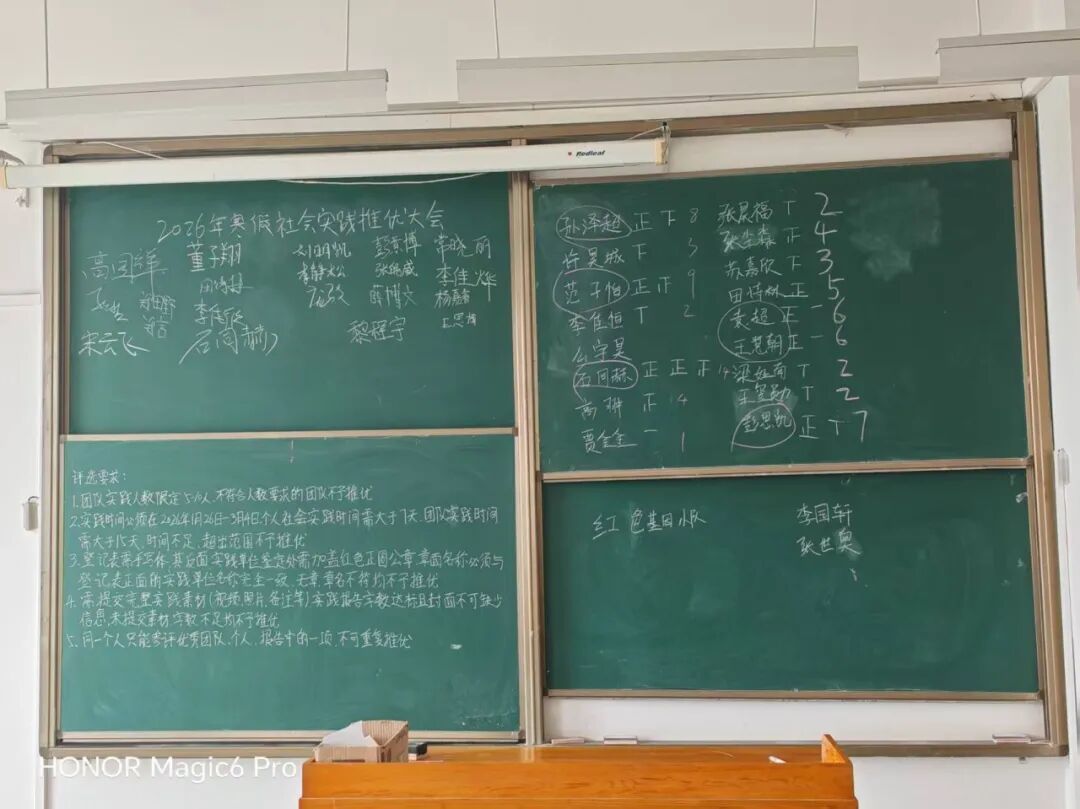 Redleaf
2026年寒假社会实践推优大会
董子翔
彭景博
常晓丽
李佳烨
薛博文
宋云飞
黎程宇
评选要求:
1.团队实践人数限定5-10人,不符合人数要求的团队不予推优
2.实践时间必须在2026年1月26日-3月4日,个人社会实践时间需大于7天,团队实践时间
需大于15天,时间不足、超出范围不予推优
3.登记表需手写体,其反面实践单位鉴定处需加盖红色正圆公章,章面名称必须与
登记表正面所实践单位名称完全一致,无章、章名不符均不予推优
4.需提交完整实践素材(视频、照片、备注等)实践报告字数达标且封面不可缺少
信息,未提交素材、字数不足均不予推优
5.同一个人只能参评优秀团队、个人、报告中的一项,不可重复推优
孙泽超 正 下 8
许昊城 下 3
范子怡 正 正 9
李佳恒 丅 2
么宇昊
石间赫 正 正 正 14
高琳 正 4
贾金金 一 1
张晨福 丅 2
正 4
苏嘉欣 下 3
田诗林 正 5
袁超 正 一 6
王楚朝 正 一 6
丅 2
丅 2
彭思凯 正 丅 7
红色基因小队
李国轩
张世奥
HONOR Magic6 Pro